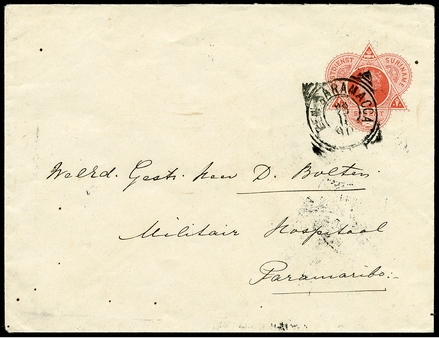 POSTDIENST SURINAME
SARAMACCA
Weled. Gestr. heer D. Bolten
Militair Hospitaal
Paramaribo.-